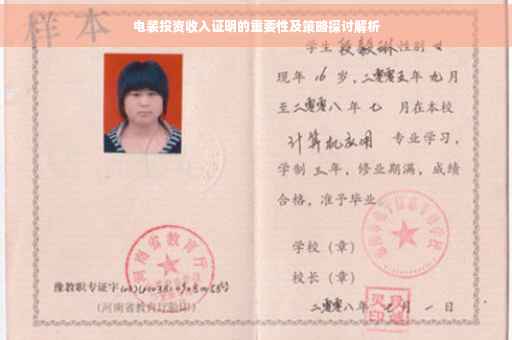 电表投资收入证明的重要性及策略探讨解析
样本
学生段毅琳性别女
现年16岁，二零零五年九月
至二零零八年七月在本校
计算机应用 专业学习，
学制三年，修业期满，成绩
合格，准予毕业。
学校（章）
校长（章）
二零零八年七月一日
河南省教育厅
豫教职专证字
(河南省教育厅验印)